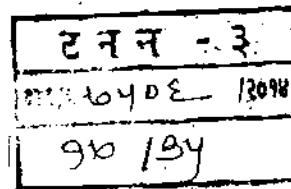 ट न न - ३
७५०६ /२०१४
१७ /३५